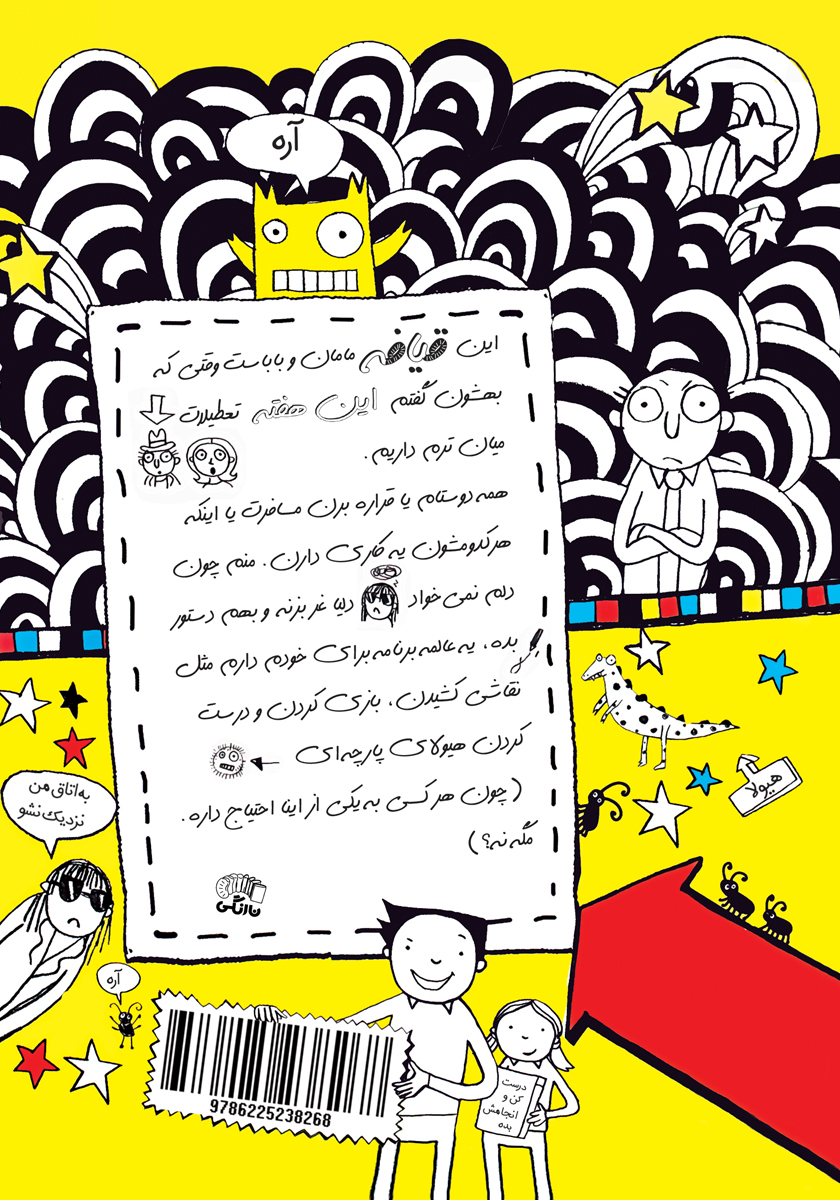 آره
این قیافه مامان و باباست وقتی که
بهشون گفتم این هفته تعطیلات
میان ترم داریم.
همه دوستام یا قراره برن مسافرت یا اینکه
هرکدومشون یه کاری دارن. منم چون
دلم نمی‌خواد دلیا غر بزنه و بهم دستور
بده، یه عالمه برنامه برای خودم دارم مثل
نقاشی کشیدن، بازی کردن و درست
کردن هیولای پارچه‌ای
(چون هر کسی به یکی از اینا احتیاج داره.
مگه نه؟)
نارنگی
هیولا
به اتاق من
نزدیک نشو
آره
9786225238268
درست
کن و
انجامش
بده